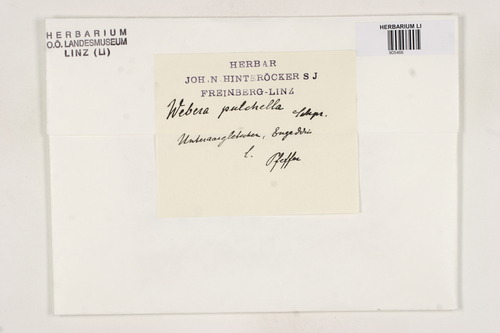 HERBARIUM
O.Ö. LANDESMUSEUM
LINZ (LI)
HERBARIUM LI
HERBAR
JOH. N. HINTERÖCKER S J
FREINBERG-LINZ
Webera pulchella Schpr.
Unteraargletscher,
l. Pfeffer